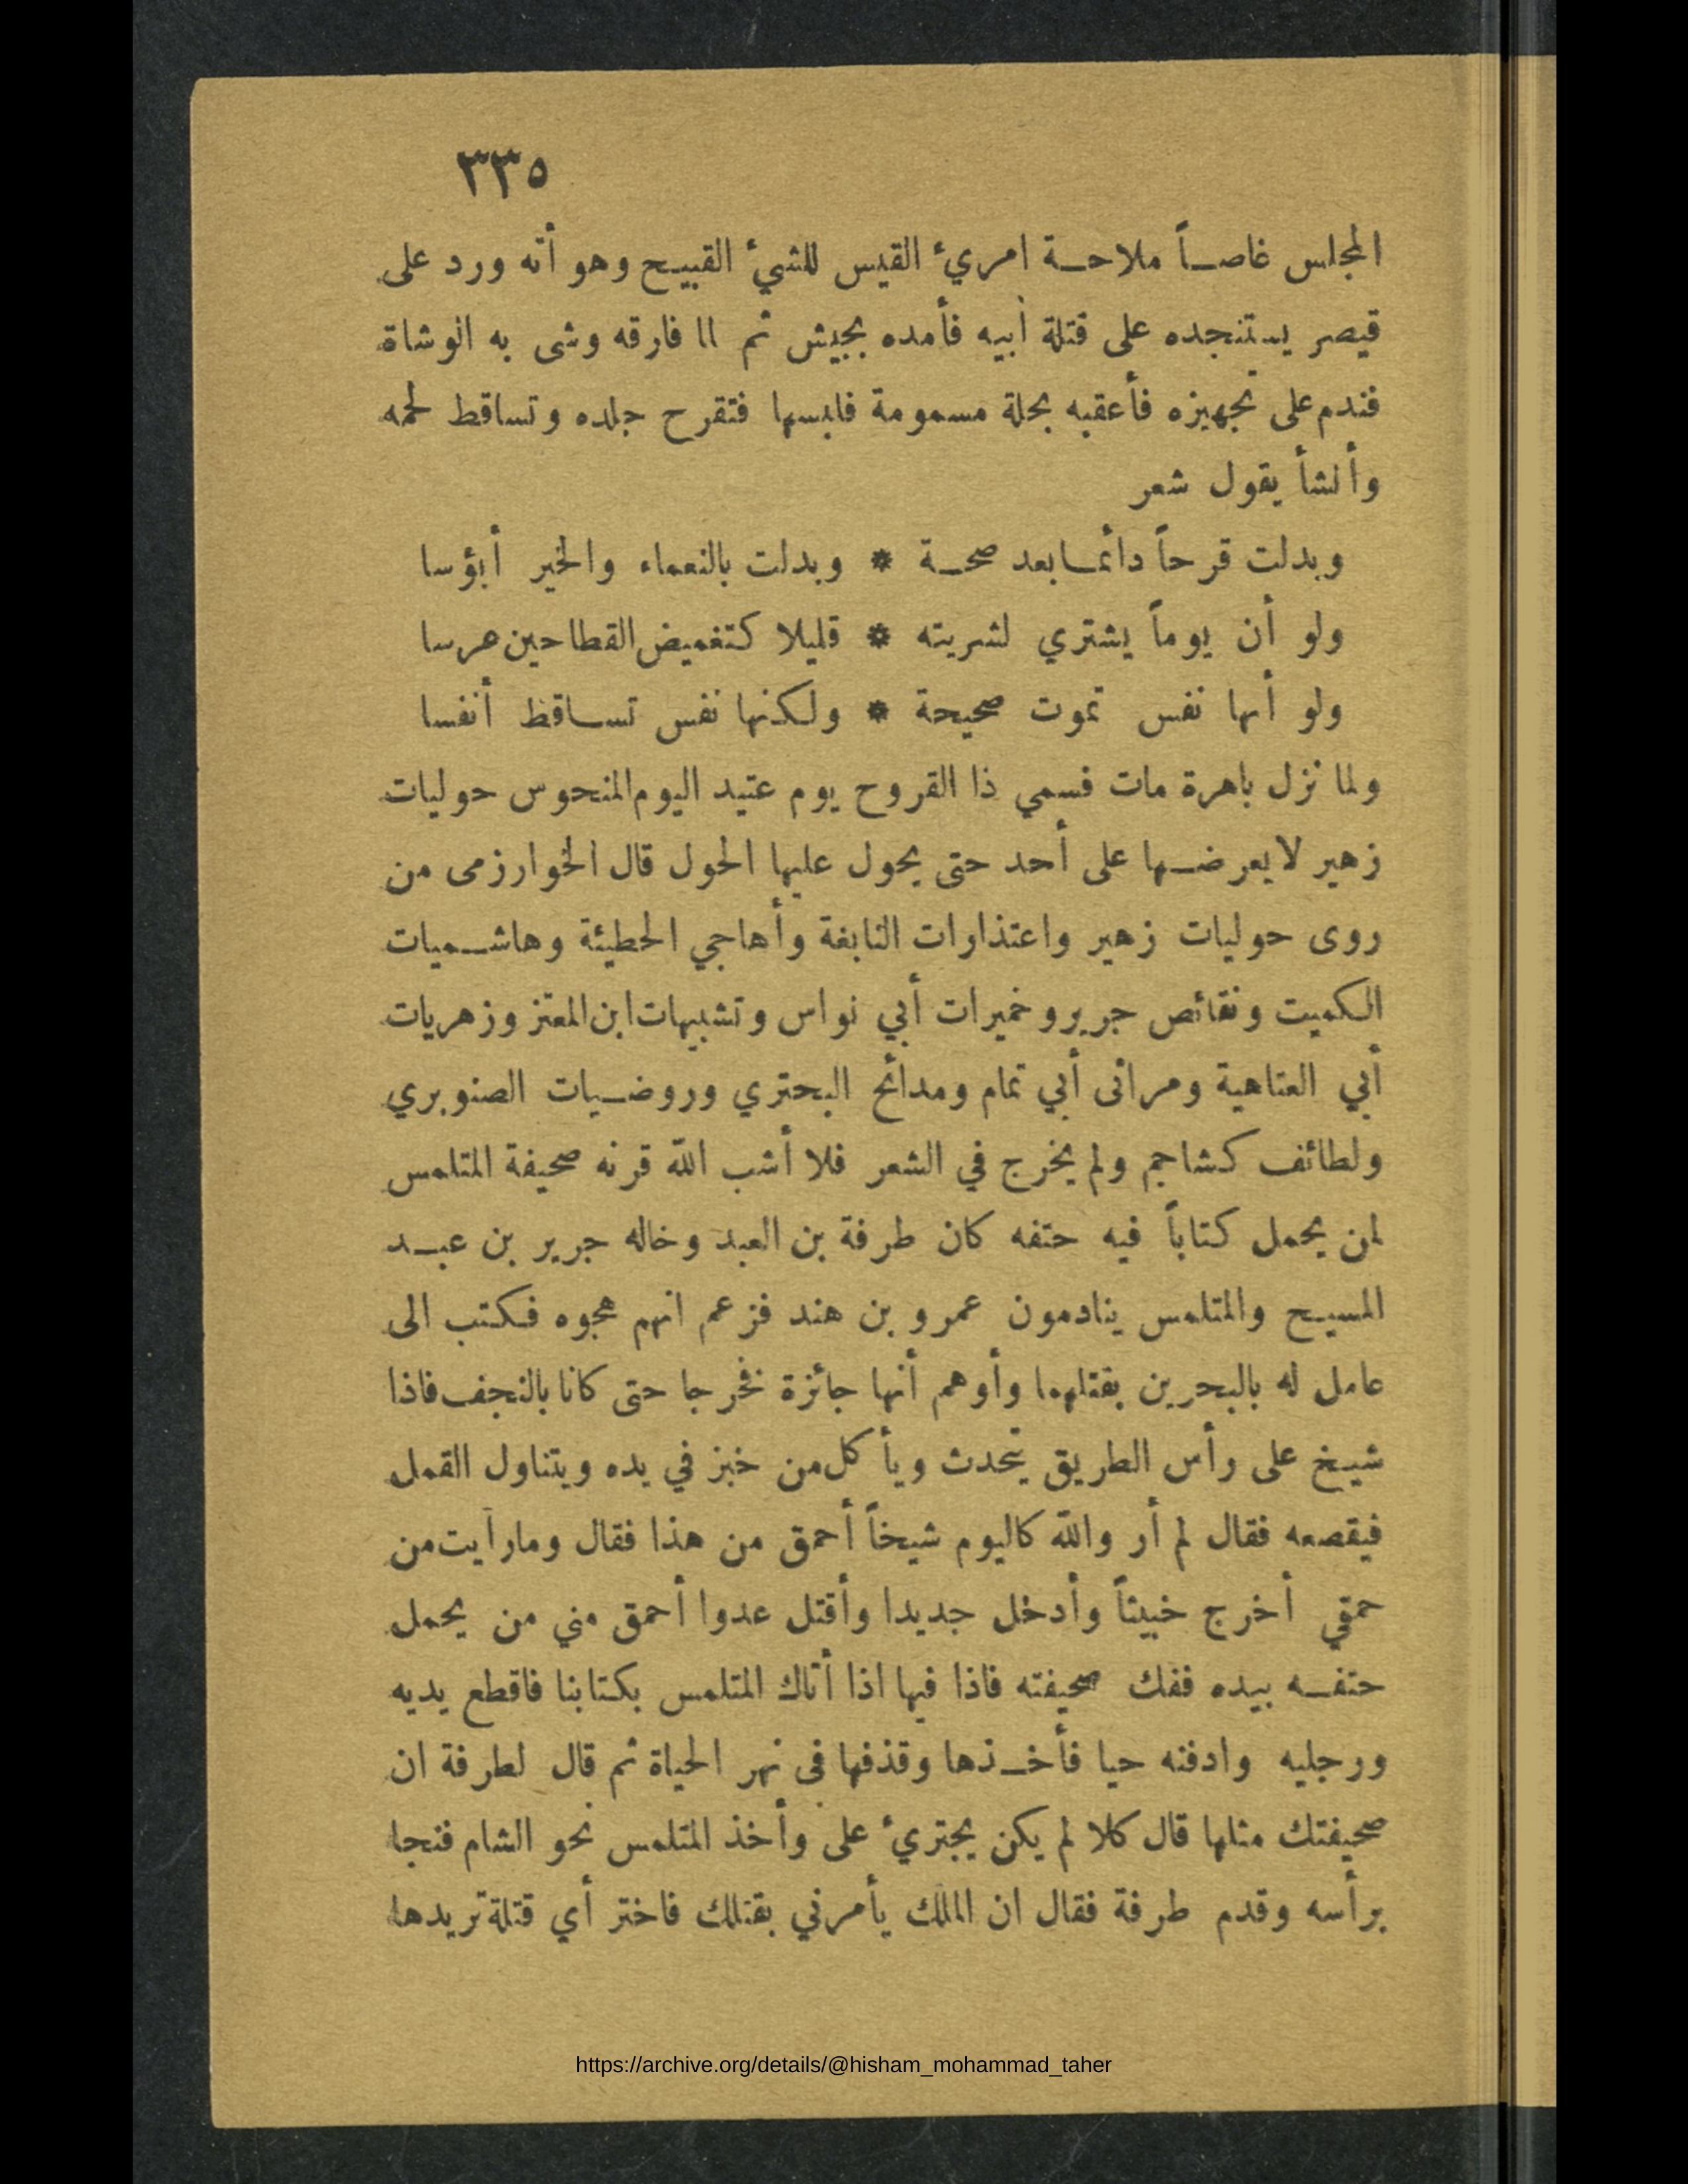 ٣٣٥
المجلس غاصاً ملاحة امريء القيس للشيء القبيح وهو أنه ورد على
قيصر يستنجده على قتلة أبيه فأمده بجيش ثم لما فارقه وشى به الوشاة
فندم على تجهيزه فأعقبه بحلة مسمومة فلبسها فتقرح جلده وتساقط لحمه
وأنشأ يقول شعر
وبدلت قرحاً دائما بعد صحة * وبدلت بالنعماء والخير أبؤسا
ولو أن يوماً يشتري لشريته * قليلا كتغميض القطا حين هرسا
ولو أنها نفس تموت صحيحة * ولكنها نفس تساقط أنفسا
ولما نزل باهرة مات فسمي ذا القروح يوم عتيد اليوم المنحوس حوليات
زهير لا يعرضها على أحد حتى يحول عليها الحول قال الخوارزمى من
روى حوليات زهير واعتذارات النابغة وأهاجي الحطيئة وهاشميات
الكميت ونقائص جرير وخميرات أبي نواس وتشبيهات ابن المعتز وزهريات
أبي العتاهية ومراثى أبي تمام ومدائح البحتري وروضيات الصنوبري
ولطائف كشاجم ولم يخرج في الشعر فلا أشب الله قرنه صحيفة المتلمس
لمن يحمل كتاباً فيه حتفه كان طرفة بن العبد وخاله جرير بن عبد
المسيح والمتلمس ينادمون عمرو بن هند فزعم انهم هجوه فكتب الى
عامل له بالبحرين بقتلهما وأوهم أنها جائزة فخرجا حتى كانا بالنجف فاذا
شيخ على رأس الطريق يتحدث ويأكل من خبز في يده ويتناول القمل
فيقصعه فقال لم أر والله كاليوم شيخاً أحمق من هذا فقال وما رأيت من
حمقي أخرج خبيثاً وأدخل جديدا وأقتل عدوا أحمق مني من يحمل
حتفه بيده ففك صحيفته فاذا فيها اذا أتاك المتلمس بكتابنا فاقطع يديه
ورجليه وادفنه حيا فأخذها وقذفها فى نهر الحياة ثم قال لطرفة ان
صحيفتك مثلها قال كلا لم يكن يجتريء على وأخذ المتلمس نحو الشام فنجا
برأسه وقدم طرفة فقال ان الملك يأمرني بقتلك فاختر أي قتلة تريدها
https://archive.org/details/@hisham_mohammad_taher